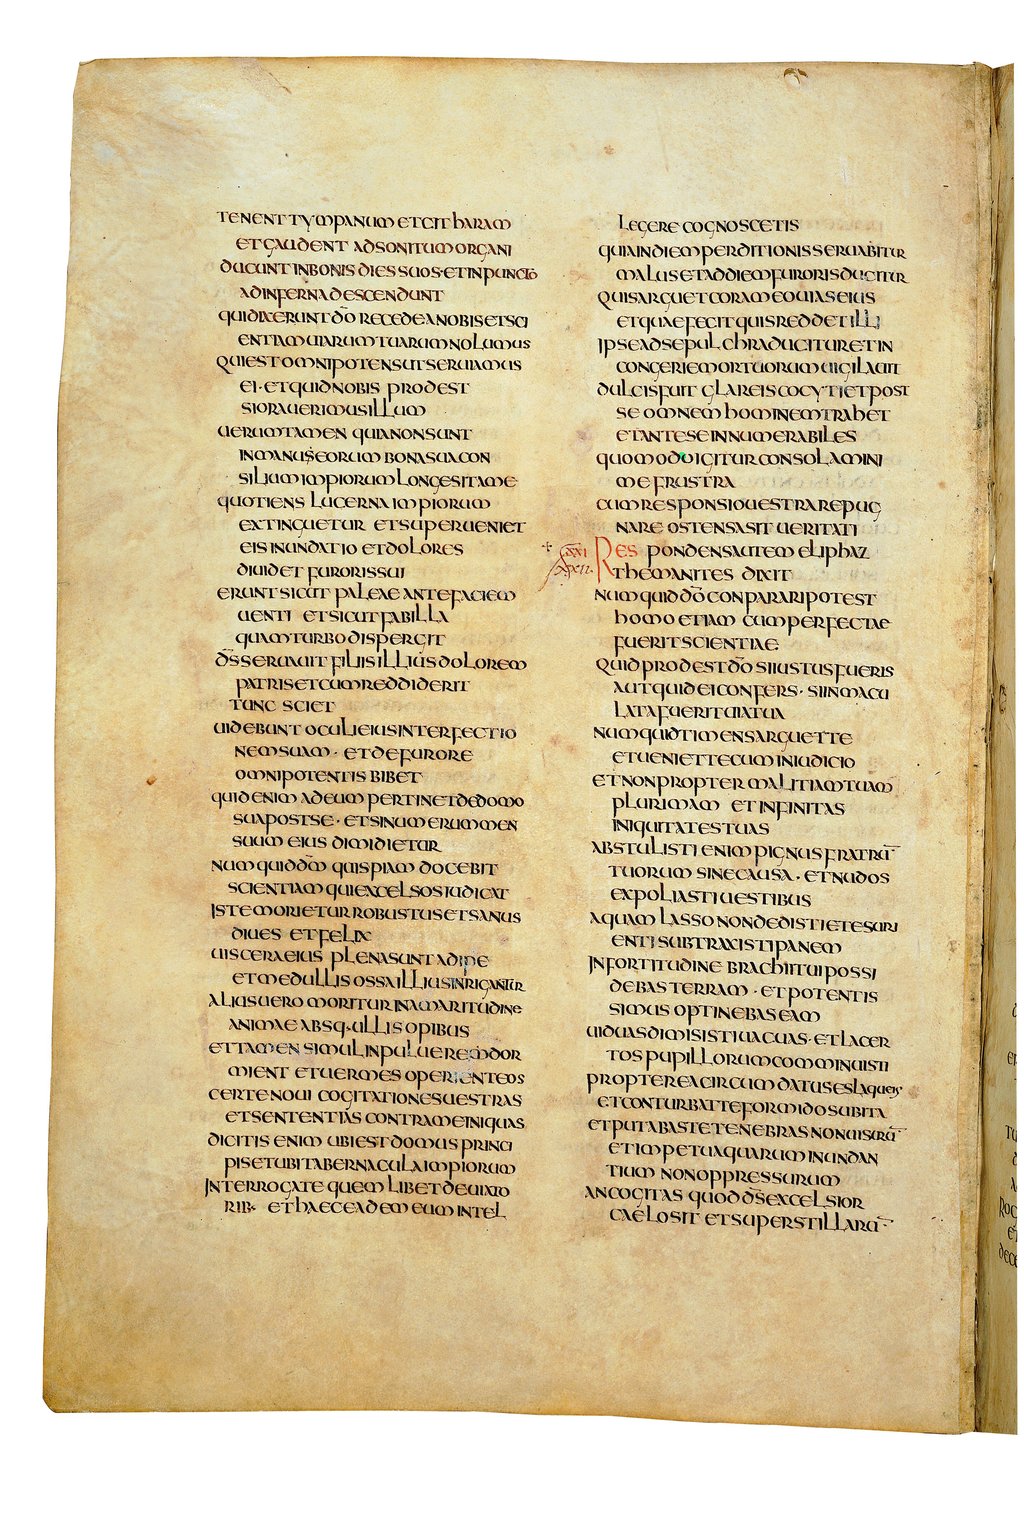 TENENT TYMPANUM ET CITHARAM
ET GAUDENT AD SONITUM ORGANI
DUCUNT IN BONIS DIES SUOS · ET IN PUNCTO
AD INFERNA DESCENDUNT
QUI DIXERUNT DŌ RECEDE A NOBIS ET SCI
ENTIAM UIARUM TUARUM NOLUMUS
QUIS EST OMNIPOTENS UT SERUIAMUS
EI · ET QUID NOBIS PRODEST
SI ORAUERIMUS ILLUM
UERUM TAMEN QUIA NON SUNT
IN MANUS EORUM BONA SUA CON
SILIUM IMPIORUM LONGE SIT A ME
QUOTIENS LUCERNA IMPIORUM
EXTINGUETUR ET SUPERUENIET
EIS INUNDATIO ET DOLORES
DIUIDET FURORIS SUI
ERUNT SICUT PALEAE ANTE FACIEM
UENTI ET SICUT FABILLA
QUAM TURBO DISPERGIT
DS̄ SERUAUIT FILIIS ILLIUS DOLOREM
PATRIS ET CUM REDDIDERIT
TUNC SCIET
UIDEBUNT OCULI EIUS INTERFECTIO
NEM SUAM · ET DE FURORE
OMNIPOTENTIS BIBET
QUID ENIM AD EUM PERTINET DE DOMO
SUA POST SE · ET SI NUMERUM MEN
SUUM EIUS DIMIDIETUR
NUMQUID DM̄ QUISPIAM DOCEBIT
SCIENTIAM QUI EXCELSOS IUDICAT
ISTE MORIETUR ROBUSTUS ET SANUS
DIUES ET FELIX
UISCERA EIUS PLENA SUNT ADIPE
ET MEDULLIS OSSA ILLIUS INRIGANTUR
ALIUS UERO MORITUR IN AMARITUDINE
ANIMAE ABSQ· ULLIS OPIBUS
ET TAMEN SIMUL IN PULUERE DOR
MIENT ET UERMES OPERIENT EOS
CERTE NOUI COGITATIONES UESTRAS
ET SENTENTIAS CONTRA ME INIQUAS
DICITIS ENIM UBI EST DOMUS PRINCI
PIS ET UBI TABERNACULA IMPIORUM
INTERROGATE QUEMLIBET DE UIATO
RIB· ET HAEC EADEM EUM INTEL
LEGERE COGNOSCETIS
QUIA IN DIEM PERDITIONIS SERUABITUR
MALUS ET AD DIEM FURORIS DUCITUR
QUIS ARGUET CORAM EO UIAS EIUS
ET QUAE FECIT QUIS REDDET ILLI
IPSE AD SEPULCHRA DUCITUR ET IN
CONGERIE MORTUORUM UIGILAUIT
DULCIS FUIT GLAREIS COCYTI ET POST
SE OMNEM HOMINEM TRAHET
ET ANTE SE INNUMERABILES
QUOMODO IGITUR CONSOLAMINI
ME FRUSTRA
CUM RESPONSIO UESTRA REPUG
NARE OSTENSA SIT UERITATI
RESPONDENS AUTEM ELIPHAZ
THEMANITES DIXIT
NUMQUID DŌ CONPARARI POTEST
HOMO ETIAM CUM PERFECTAE
FUERIT SCIENTIAE
QUID PRODEST DŌ SI IUSTUS FUERIS
AUT QUID EI CONFERS · SI INMACU
LATA FUERIT UIA TUA
NUMQUID TIMENS ARGUET TE
ET UENIET TECUM IN IUDICIO
ET NON PROPTER MALITIAM TUAM
PLURIMAM ET INFINITAS
INIQUITATES TUAS
ABSTULISTI ENIM PIGNUS FRATRŪ
TUORUM SINE CAUSA · ET NUDOS
EXPOLIASTI UESTIBUS
AQUAM LASSO NON DEDISTI ET ESURI
ENTI SUBTRAXISTI PANEM
IN FORTITUDINE BRACHII TUI POSSI
DEBAS TERRAM · ET POTENTIS
SIMUS OPTINEBAS EAM
UIDUAS DIMISISTI UACUAS · ET LACER
TOS PUPILLORUM COMMINUISTI
PROPTEREA CIRCUMDATUS ES LAQUEIS
ET CONTURBAT TE FORMIDO SUBITA
ET PUTABAS TE TENEBRAS NON UISURŪ
ET IMPETU AQUARUM INUNDAN
TIUM NON OPPRESSURUM
AN COGITAS QUOD DS̄ EXCELSIOR
CAELO SIT ET SUPER STILLARŪ